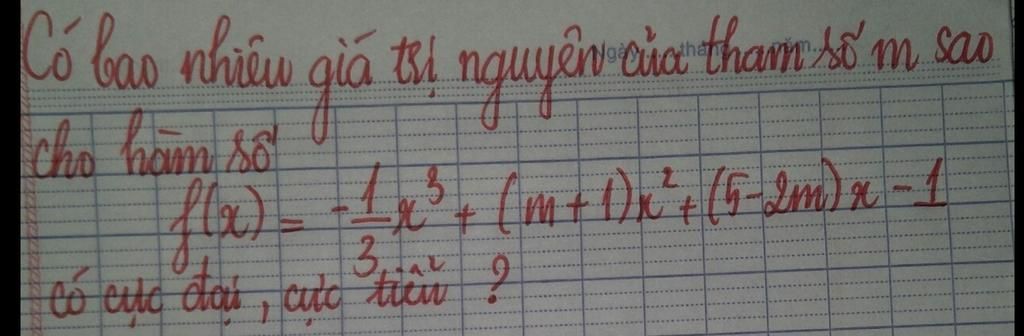 Có bao nhiêu giá trị nguyên của tham số m sao
cho hàm số
f(x) = -1/3 x³ + (m+1)x² + (5-2m)x - 1
có cực đại, cực tiểu ?